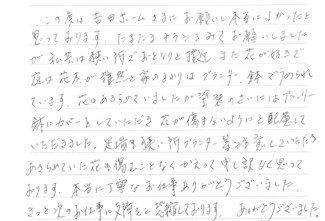 この度は吉田ホームさまにお願いし本当によかったと
思っております。たまたまチラシをみてお願いしました
が私共は狭い所でおとなりと接近 また花が好きで
庭は花木が雑然と家のまわりはプランター、鉢でうめられ
ています。花はあきらめていましたが塗装のさいにはプランター
鉢にカバーをしていただき花が傷まないようにと配慮して
いただきました。足場も狭い所プランター等 注意していただき
あきらめていた花も傷むことなくかえって申し訳なく思って
おります。本当に丁寧なお仕事ありがとうございました。
きっと次のお仕事に支障をと恐縮しております。 ありがとうございました